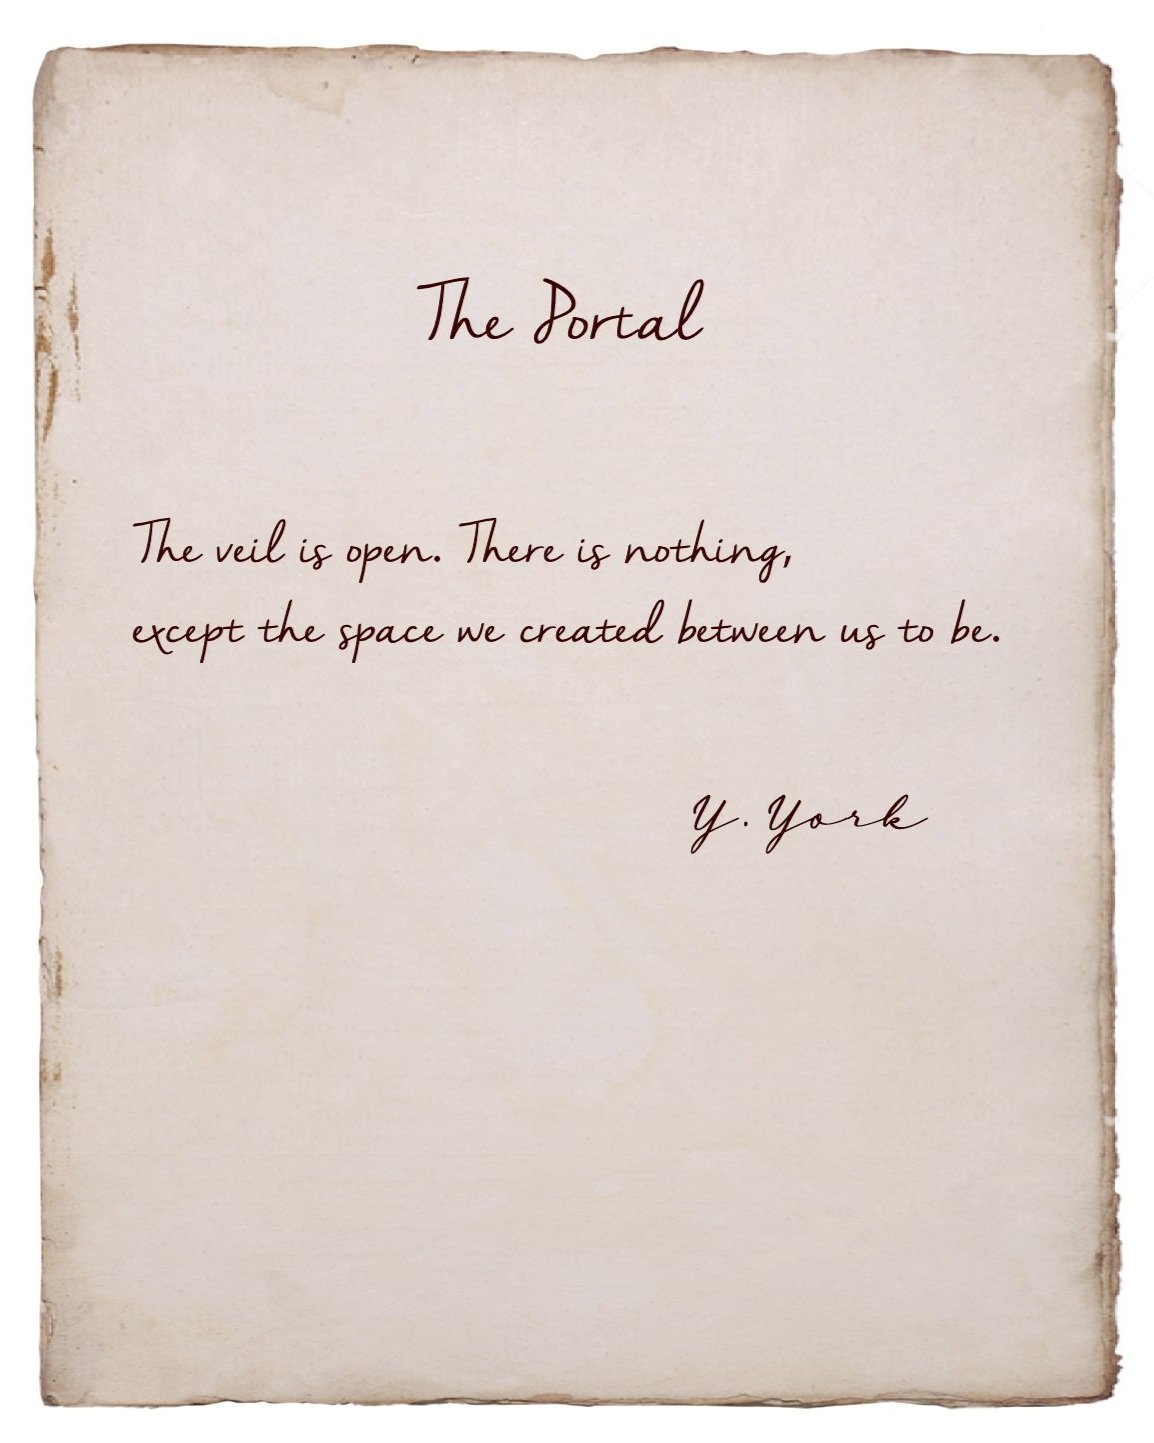 The Portal
The veil is open. There is nothing,
except the space we created between us to be.
Y. York